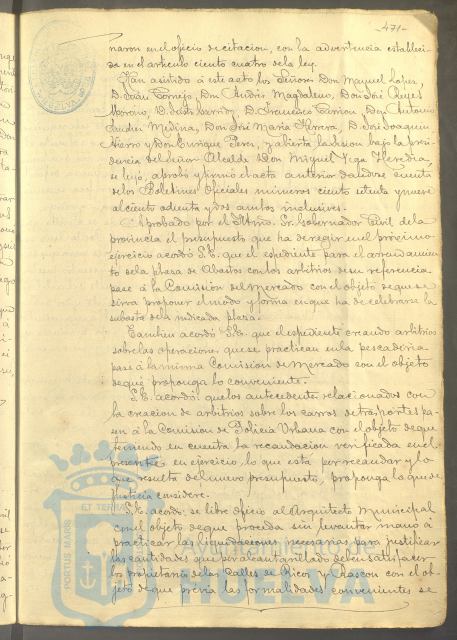 471-
naron en el oficio de citacion, con la advertencia estableci-
da en el articulo ciento cuatro de la ley.
Han asistido á este acto los Señores Don Manuel Lopez
D. Juan Cornejo, Don Andrés Magdaleno, Don José Reyes
Moreno, D. Justo Garrido, D. Francisco Carrion, Don Antonio
Sanchez Medina, Don José Maria Herrera, D. José Joaquin
Hierro y Don Enrique Perez, y abierta la sesion bajo la presi-
dencia del Señor Alcalde Don Miguel Vega Heredia,
se leyó, aprobó y firmó el acta anterior dandose cuenta
de los Boletines Oficiales números ciento setenta y nueve
al ciento ochenta y dos ambos inclusives.
Aprobado por el Iltmo. Sr. Gobernador Civil de la
provincia el presupuesto que ha de regir en el próximo
ejercicio acordó S.E. que el espediente para el arrendamien-
to de la plaza de Abastos con los arbitrios de su referencia
pase á la Comision de Mercado con el objeto de que se
sirva proponer el modo y forma en que ha de celebrarse la
subasta de la indicada plaza.
Tambien acordó S.E. que el espediente creando arbitrios
sobre las operaciones que se practican en la pescaderia
pase á la misma Comision de Mercado con el objeto
de que proponga lo conveniente.
S.E. acordó que los antecedentes relacionados con
la creacion de arbitrios sobre los carros de trasportes pa-
sen á la Comision de Policia Urbana con el objeto de que
teniendo en cuenta la recaudacion verificada en el
presente en ejercicio, lo que esta por recaudar y lo
que resulta del nuevo presupuesto, proponga lo que de
justicia considere.
S.E. acordó se libre oficio al Arquitecto Municipal
con el objeto de que proceda sin levantar mano á
practicar las liquidaciones necesarias para justificar
las cantidades que por alcantarillado deben satisfacer
los propietarios de las Calles de Rico y Rascon con el ob-
jeto de que previa las formalidades convenientes se
PORTUS MARIS ET TERRAE
Ayuntamiento de
HUELVA